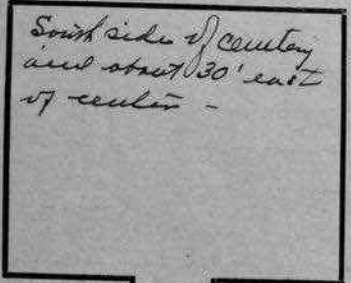 South side of cemetery
and about 30' east
of center -